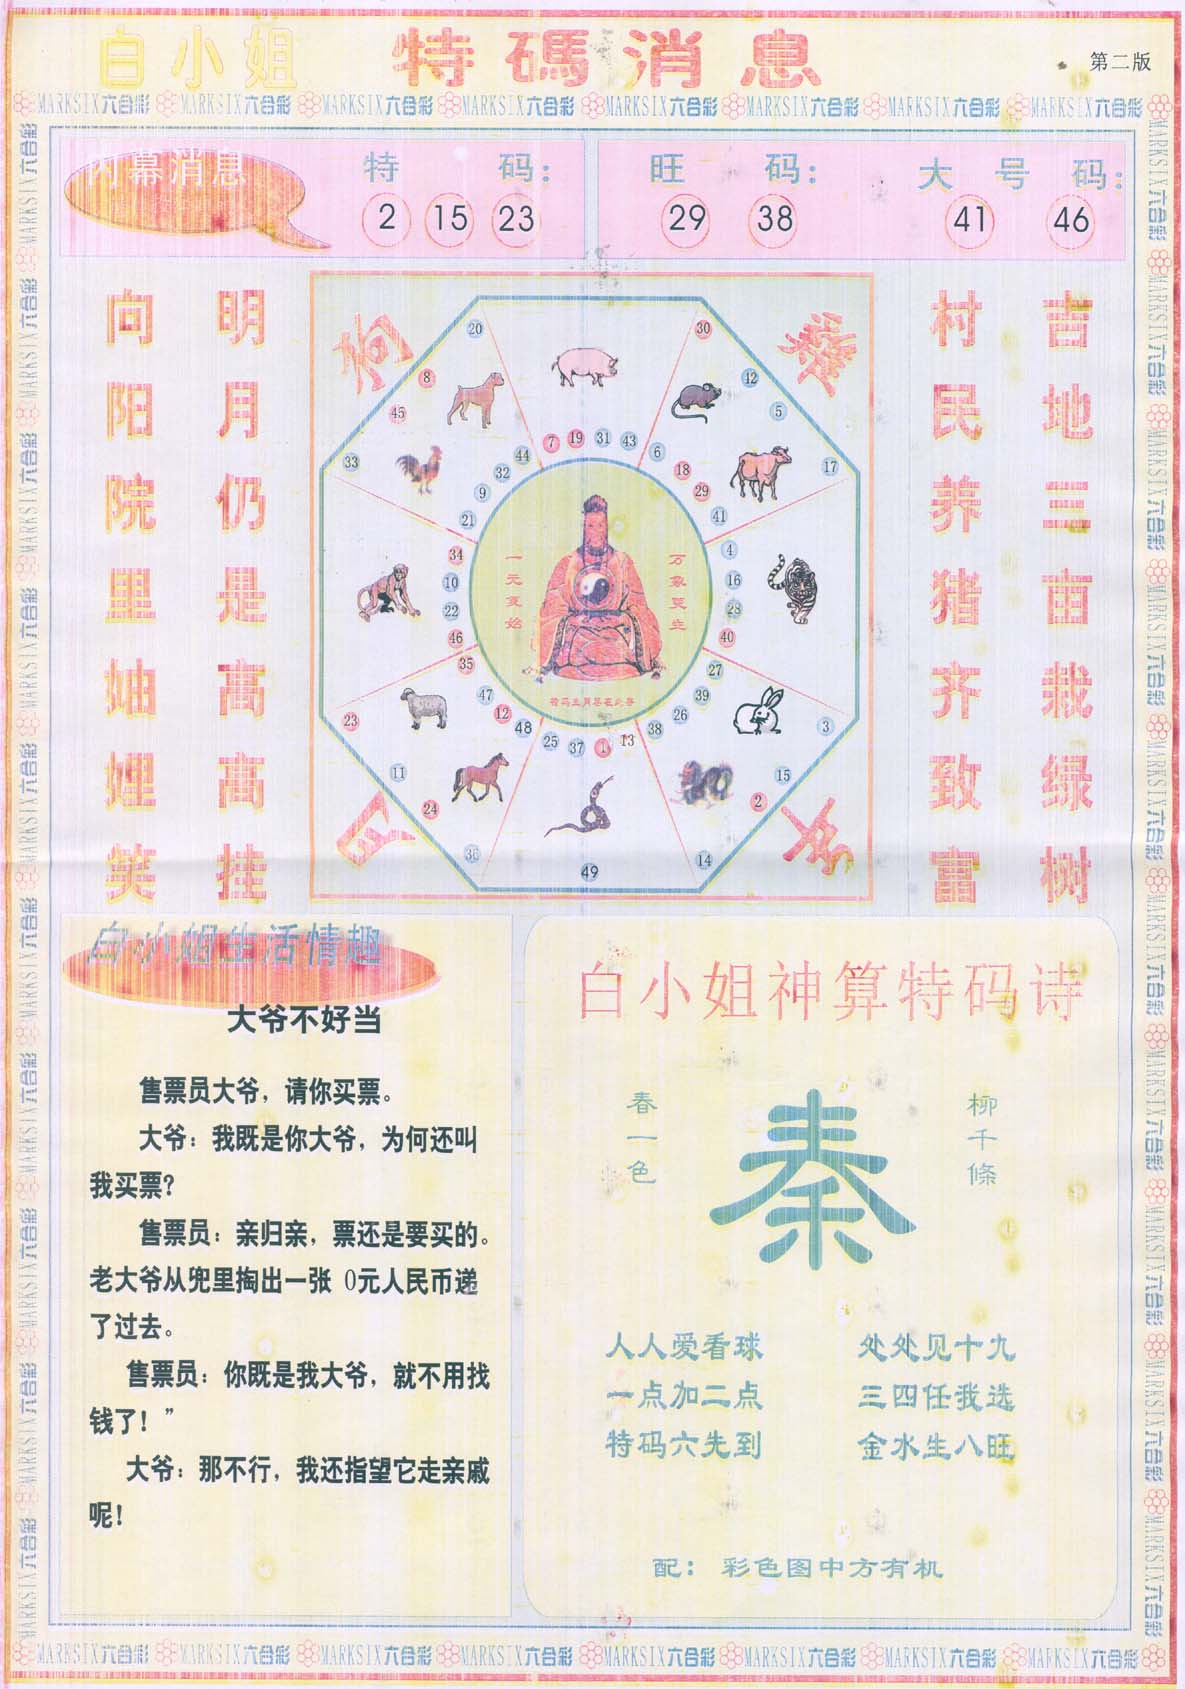 白小姐 特碼消息 第二版
MARKSIX六合彩 MARKSIX六合彩 MARKSIX六合彩 MARKSIX六合彩 MARKSIX六合彩 MARKSIX六合彩 MARKSIX六合彩 MARKSIX六合彩
内幕消息
特码：
2 15 23
旺码：
29 38
大号码：
41 46
向阳院里妯娌笑
明月仍是高高挂
村民养猪齐致富
吉地三亩栽绿树
20 30
8 42
45 5
33 17
7 19 31 43
44 6
32 18
9 29
21 41
34 4
10 16
22 28
46 40
35 27
47 39
12 26
48 38
25 37 1 13
23 3
11 15
24 2
36 14
49
一元复始
万象更生
特码生肖尽在此寻
白小姐生活情趣
大爷不好当
售票员大爷，请你买票。
大爷：我既是你大爷，为何还叫
我买票？
售票员：亲归亲，票还是要买的。
老大爷从兜里掏出一张 0元人民币递
了过去。
售票员：你既是我大爷，就不用找
钱了！”
大爷：那不行，我还指望它走亲戚
呢！
白小姐神算特码诗
春一色
秦
柳千條
人人爱看球 处处见十九
一点加二点 三四任我选
特码六先到 金水生八旺
配：彩色图中方有机
MARKSIX六合彩 MARKSIX六合彩 MARKSIX六合彩 MARKSIX六合彩 MARKSIX六合彩 MARKSIX六合彩 MARKSIX六合彩 MARKSIX六合彩